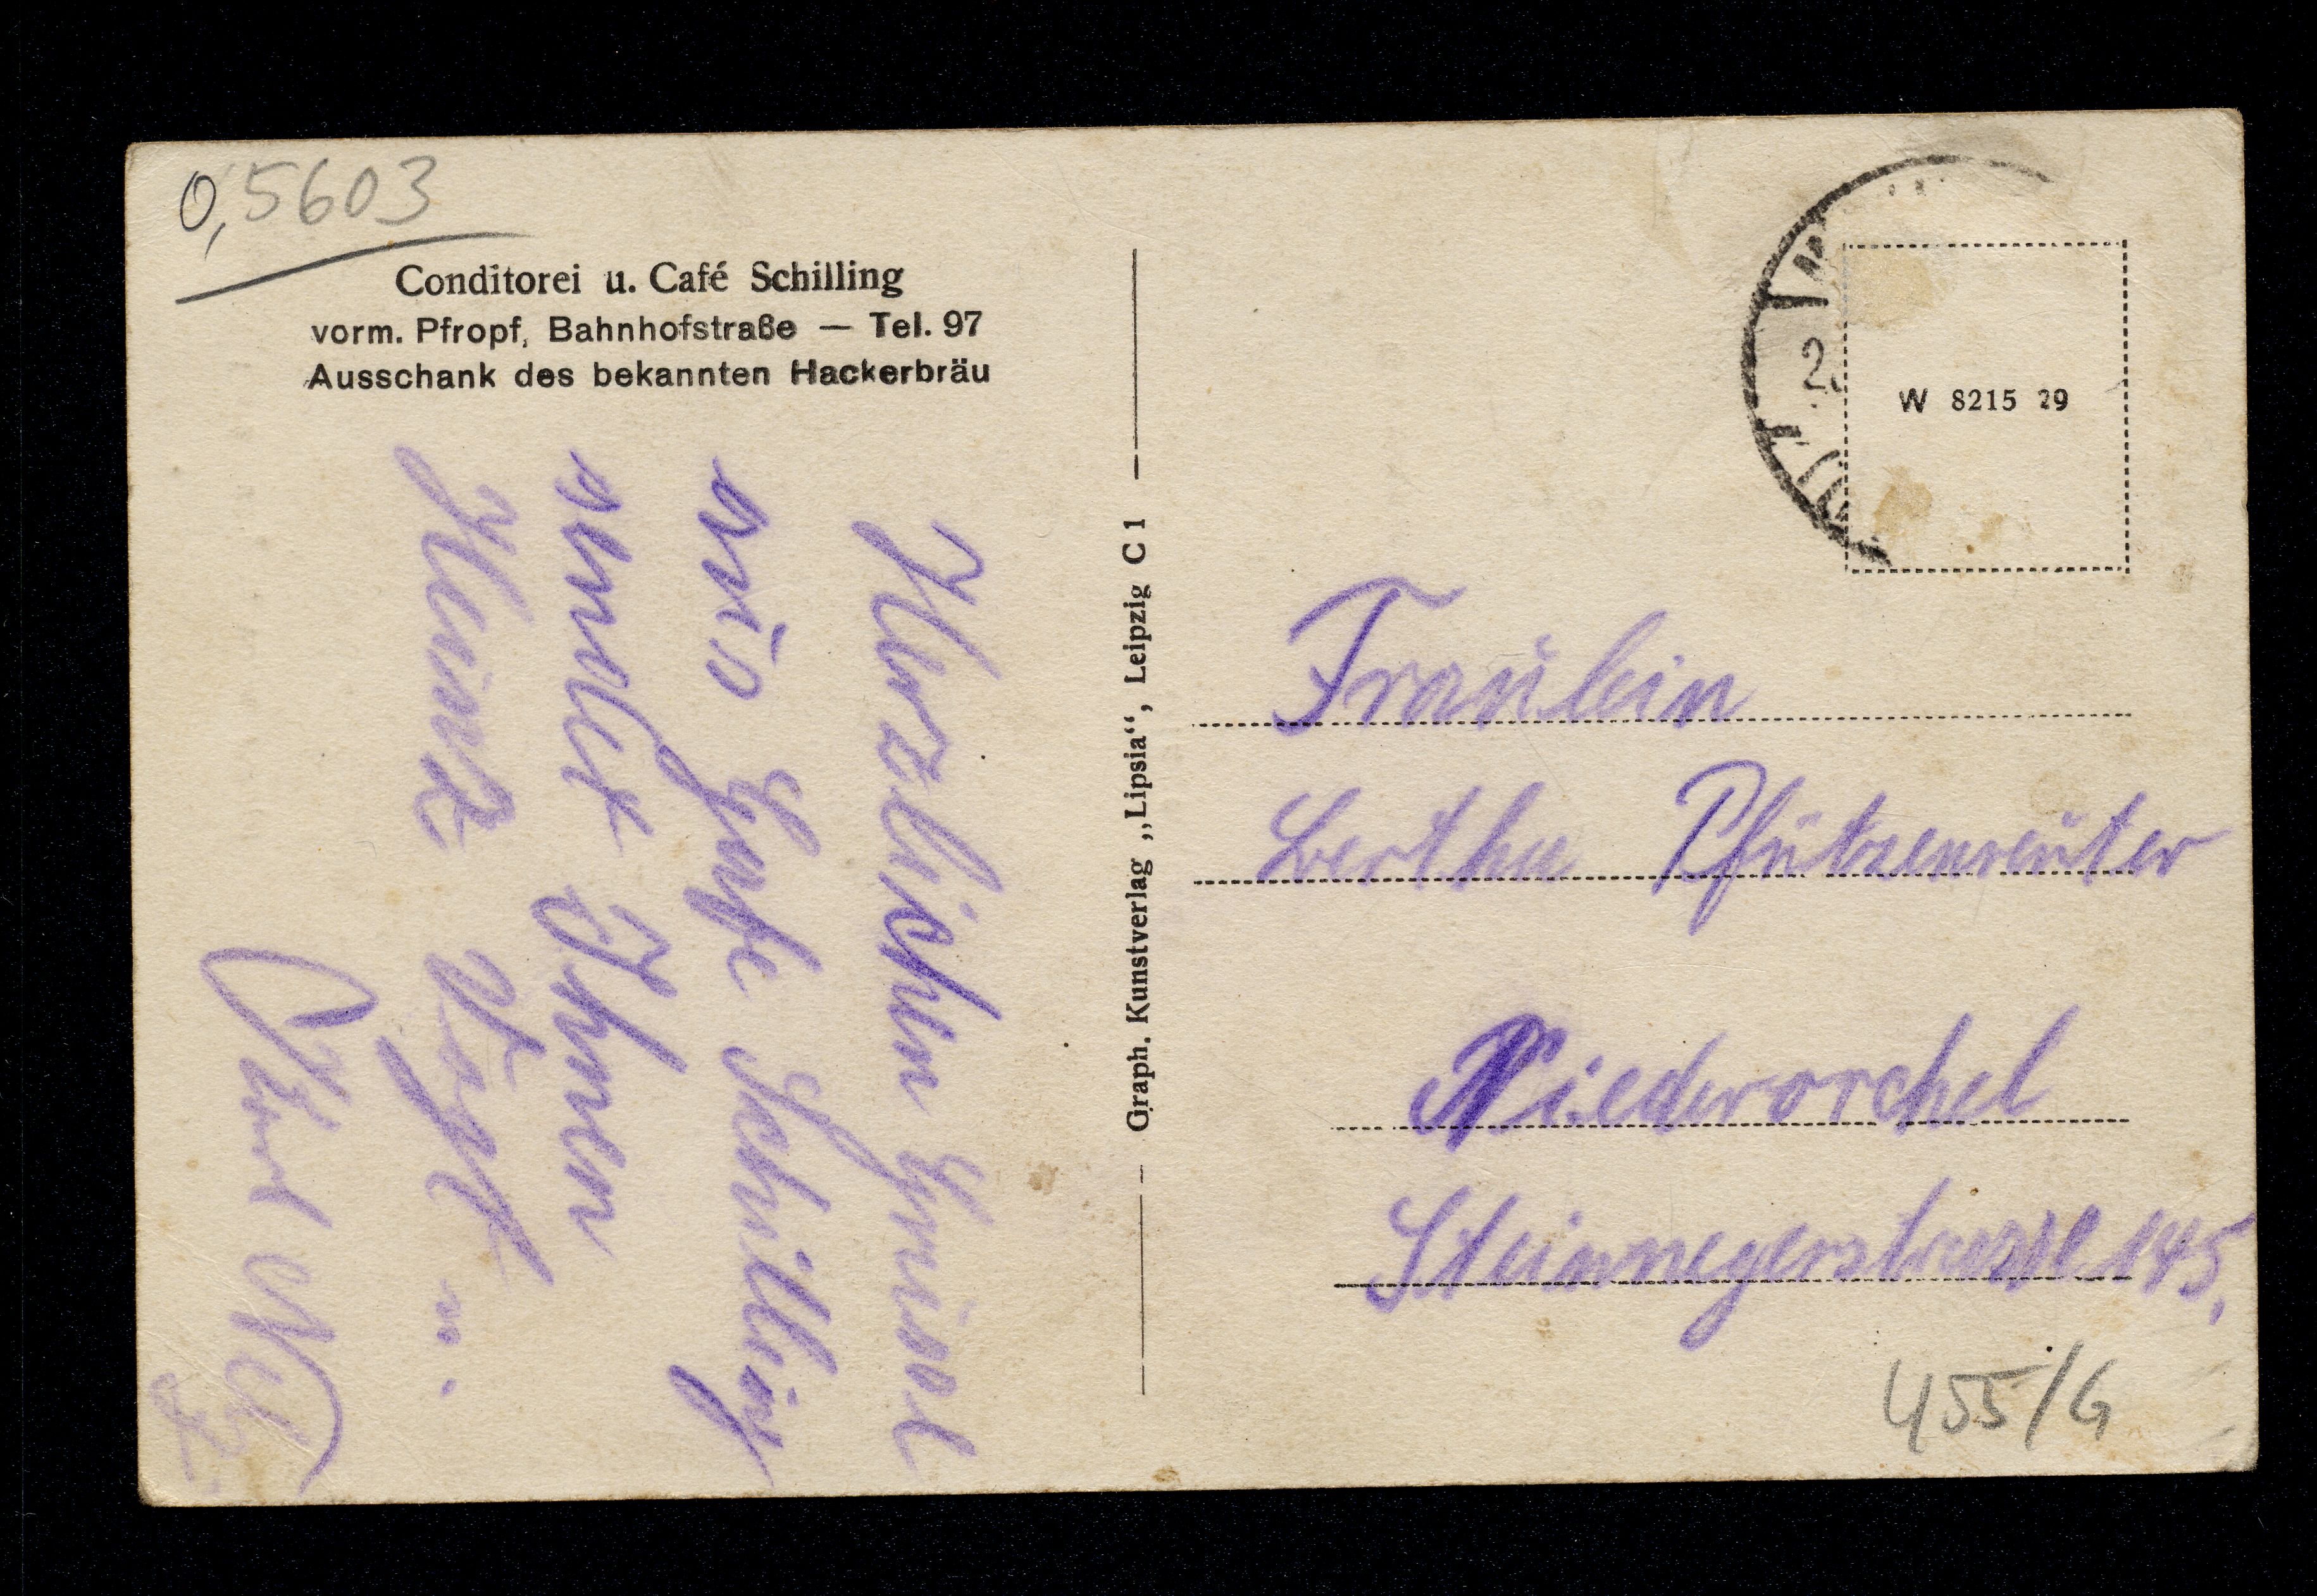 0,5603
Conditorei u. Café Schilling
vorm. Pfropf, Bahnhofstraße — Tel. 97
Ausschank des bekannten Hackerbräu
Herzlichen
aus Cafe Schilling
sendet Ihnen
Heinz Vogt u.
Graph. Kunstverlag „Lipsia“, Leipzig C 1
2.
W 8215 29
Fraulein
Bertha Pfützenreuter
Niederorchel
145,
455/G